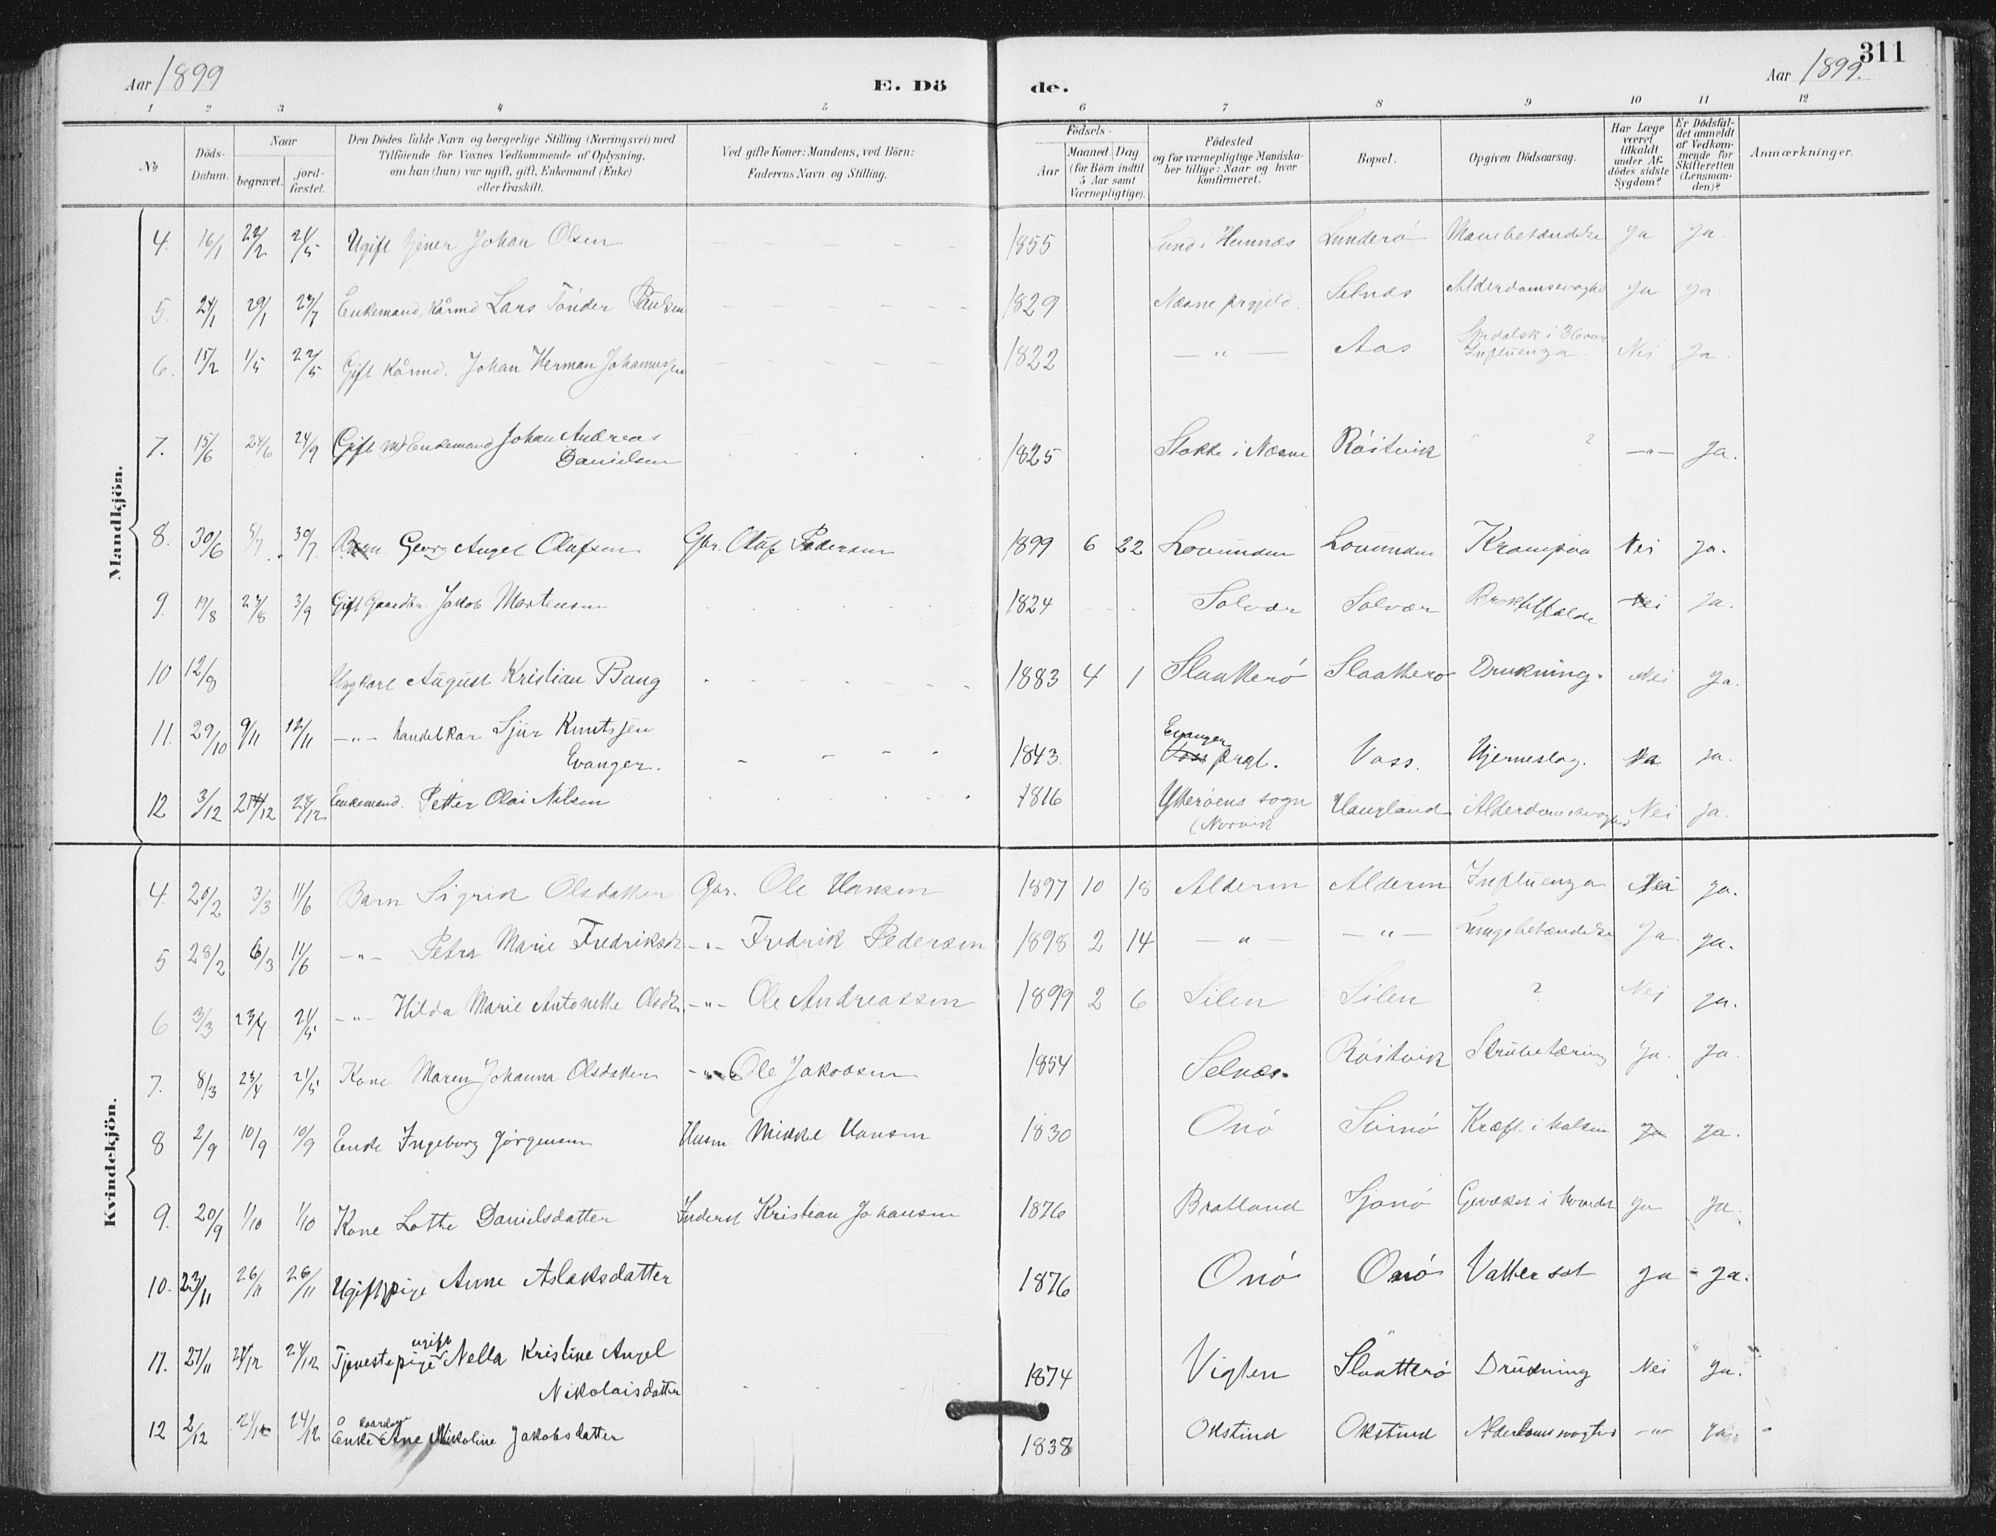 311
Aar 1899
E. Dö
de.
Aar 1899.
1 2 3 4 5 6 7 8 9 10 11 12
№
Döds-
Datum.
Naar
begravet.
jord-
fæstet.
Den Dödes fulde Navn og borgerlige Stilling (Næringsvei) med
Tilföiende for Voxnes Vedkommende af Oplysning,
om han (hun) var ugift, gift, Enkemand (Enke)
eller fraskilt.
Ved gifte Koner: Mandens, ved Börn:
Faderens Navn og Stilling.
Födsels-
Aar
Maaned
Dag
(for Börn indtil
5 Aar samt
Værnepligtige).
Födested
og for værnepligtige Mandska-
ber tillige: Naar og hvor
konfirmeret.
Bopæl.
Opgiven Dödsaarsag.
Har Læge
været
tilkaldt
under Af-
dödes sidste
Sygdom?
Er Dödsfal-
det anmeldt
af Vedkom-
mende for
Skifteretten
(Lensman-
den)?
Anmærkninger.
Mandkjön.
4. 16/1 22/2 21/5 Ugift tjener Johan Olsen 1855 Lund i Hemnæs Lunderö Mavebetændelse Ja Ja.
5. 24/1 29/1 23/7 Enkemand, Kårmd Lars Tönder Paulsen 1829 Næsne prgjeld. Selnæs Alderdomssvaghed Ja Ja.
6. 15/2 1/5 22/5 Gift Kårmd. Johan Herman Johannessen 1822 — " — Aas Spedalsk i 36 aar
Influenza. Nei Ja.
7. 15/6 24/6 24/9 Gift Enkemand Johan Andreas
Danielsen 1825 Stokke i Næsne Röitvik ? — " — Ja.
8. 30/6 5/7 30/7 Barn Georg Angel Olufsen Gbr. Oluf Pedersen 1899 6 22 Lovunden Lovunden Krampea Nei Ja.
9. 19/8 23/8 3/9 Gift Gaardbr. Jakob Martensen 1824 Solvær Solvær Broktilfælde Nei Ja.
10 12/8 Ungkarl August Kristian Bang 1883 4 1 Slaatterö Slaatterö Drukning. Nei Ja.
11. 29/10 9/11 12/11 — " — handelskar Sjur Knutsjen
Evanger. 1843. Evanger
Voss prgl. Voss. Hjerneslag. Ja Ja.
12 3/12 24/12 24/12 Enkemand. Petter Olai Nilsen 1816 Ytteröens sogn Haugland Alderdomssvaghed Nei Ja.
Kvindekjön.
4. 20/2 3/3 11/6 Barn Sigrid Olsdatter Gbr. Ole Hansen 1897 10 18 Alderen Alderen Influenza Nei Ja.
5 28/2 6/3 11/6 — " — Petra Marie Fredriksdr — " — Fredrik Pedersen 1898 2 14 — " — — " — Lungebetændelse Ja Ja.
6 3/3 23/4 21/5 — " — Hilda Marie Antonette Olsdr. — " — Ole Andreassen 1899 2 6 Silen Silen ? Nei Ja.
7. 8/3 23/4 21/5 Kone Maren Johanna Olsdatter — " — Ole Jakobsen 1854 Selnæs. Röitvik Strubetæring Ja. Ja.
8 2/9 10/9 10/9 Enke Ingeborg Jörgensen Husm. Mikkel Hansen 1830 Onö Kræft i halsen Ja Ja.
9. 20/9 1/10 1/10 Kone Lotte Danielsdatter Inderst Kristian Johansen 1876 Bratland Sjonö Gevækst i hovedet Ja Ja.
10. 23/11 26/11 26/11 Ugift pige Anne Aslaksdatter 1876 Onö Onö Vattersot Ja - Ja.
11. 27/11 24/12 24/12 Tjenestepige ugift Nella Kristine Angel
Nikolaisdatter 1874 Vigten Slaatterö Drukning Nei Ja.
12 2/12 24/12 24/12 Enke Ane Nikoline Jakobsdatter 1838 Okstind Okstind Alderdomssvaghed — " — Ja.